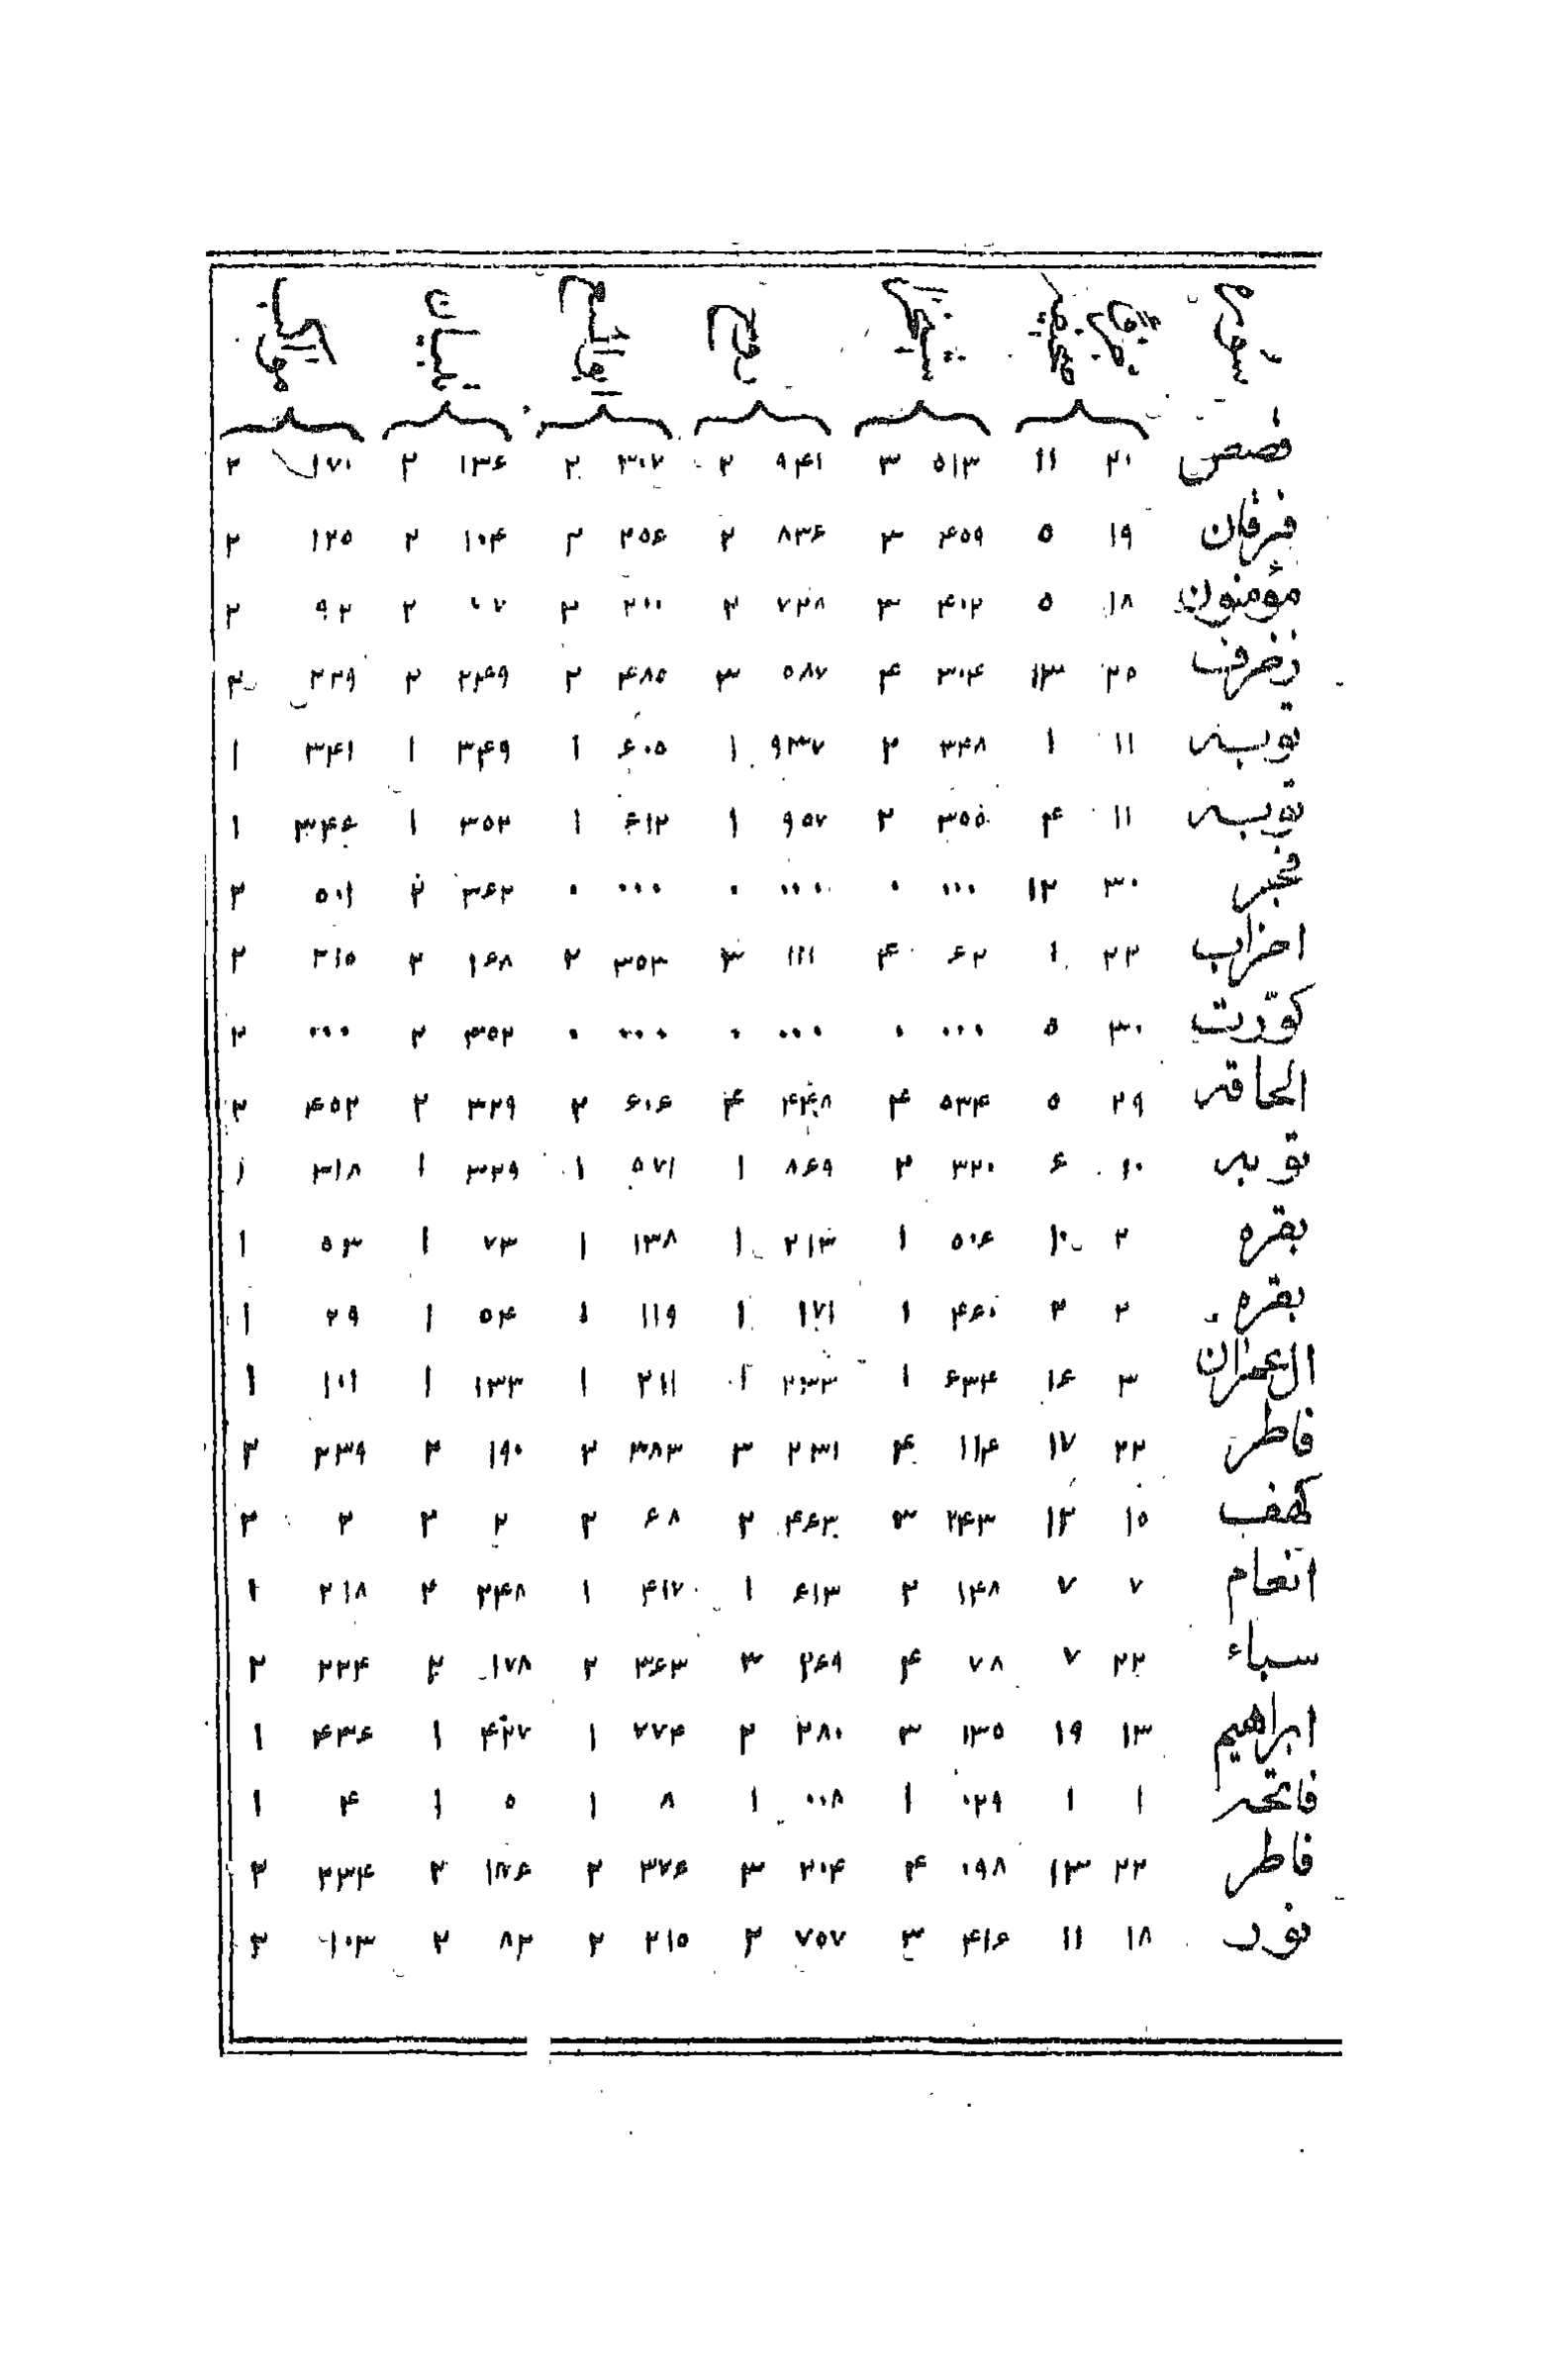 قصص ۲۰ ۱۱ ۵۱۳ ۳ ۹۴۱ ۲ ۳۰۷ ۲ ۱۳۶ ۲ ۱۷۰ ۲
فرقان ۱۹ ۵ ۴۵۹ ۳ ۸۳۶ ۲ ۲۵۶ ۲ ۱۰۴ ۲ ۱۲۵ ۲
مؤمنون ۱۸ ۵ ۴۰۲ ۳ ۷۲۸ ۲ ۲۰۰ ۲ ۰۷ ۲ ۹۲ ۲
زخرف ۲۵ ۱۳ ۳۰۴ ۴ ۵۸۷ ۳ ۴۸۵ ۲ ۲۴۹ ۲ ۲۲۹ ۲
توبه ۱۱ ۱ ۳۴۸ ۲ ۹۳۷ ۱ ۶۰۵ ۱ ۳۴۹ ۱ ۳۴۱ ۱
توبه ۱۱ ۴ ۳۵۵ ۲ ۹۵۷ ۱ ۶۱۲ ۱ ۳۵۲ ۱ ۳۴۶ ۱
فجر ۳۰ ۱۲ ۰۰۰ ۰ ۰۰۰ ۰ ۰۰۰ ۰ ۳۶۲ ۲ ۵۰۱ ۲
احزاب ۲۲ ۱ ۶۲ ۴ ۱۱۱ ۳ ۳۵۳ ۲ ۱۶۸ ۲ ۲۱۵ ۲
کوّرت ۳۰ ۵ ۰۰۰ ۰ ۰۰۰ ۰ ۰۰۰ ۰ ۳۵۲ ۲ ۰۰۰ ۲
الحاقه ۲۹ ۵ ۵۳۴ ۴ ۴۴۸ ۴ ۶۰۶ ۲ ۳۲۹ ۲ ۴۵۲ ۲
توبه ۱۰ ۶ ۳۲۰ ۲ ۸۶۹ ۱ ۵۷۱ ۱ ۳۲۹ ۱ ۳۱۸ ۱
بقره ۲ ۱۰ ۵۰۶ ۱ ۲۱۳ ۱ ۱۳۸ ۱ ۷۳ ۱ ۵۳ ۱
بقره ۲ ۲ ۴۶۰ ۱ ۱۷۱ ۱ ۱۱۹ ۱ ۵۴ ۱ ۲۹ ۱
ال عمران ۳ ۱۶ ۶۳۴ ۱ ۲۳۳ ۱ ۲۱۱ ۱ ۱۳۳ ۱ ۱۰۱ ۱
فاطر ۲۲ ۱۷ ۱۱۴ ۴ ۲۳۱ ۳ ۳۸۳ ۲ ۱۹۰ ۲ ۲۳۹ ۲
کهف ۱۵ ۱۲ ۲۴۳ ۳ ۴۶۳ ۲ ۶۸ ۲ ۲ ۲ ۲ ۲
انعام ۷ ۷ ۱۴۸ ۲ ۶۱۳ ۱ ۴۱۷ ۱ ۲۴۸ ۲ ۲۱۸ ۱
سباء ۲۲ ۷ ۷۸ ۴ ۲۶۹ ۳ ۳۶۳ ۲ ۱۷۸ ۲ ۲۲۴ ۲
ابراهیم ۱۳ ۱۹ ۱۳۵ ۳ ۲۸۰ ۲ ۷۷۴ ۱ ۴۲۷ ۱ ۴۳۶ ۱
فاتحه ۱ ۱ ۰۲۹ ۱ ۰۰۸ ۱ ۸ ۱ ۵ ۱ ۴ ۱
فاطر ۲۲ ۱۳ ۰۹۸ ۴ ۲۰۴ ۳ ۳۷۶ ۲ ۱۸۶ ۲ ۲۳۴ ۲
نور ۱۸ ۱۱ ۴۱۶ ۳ ۷۵۷ ۲ ۲۱۵ ۲ ۸۲ ۲ ۱۰۳ ۲